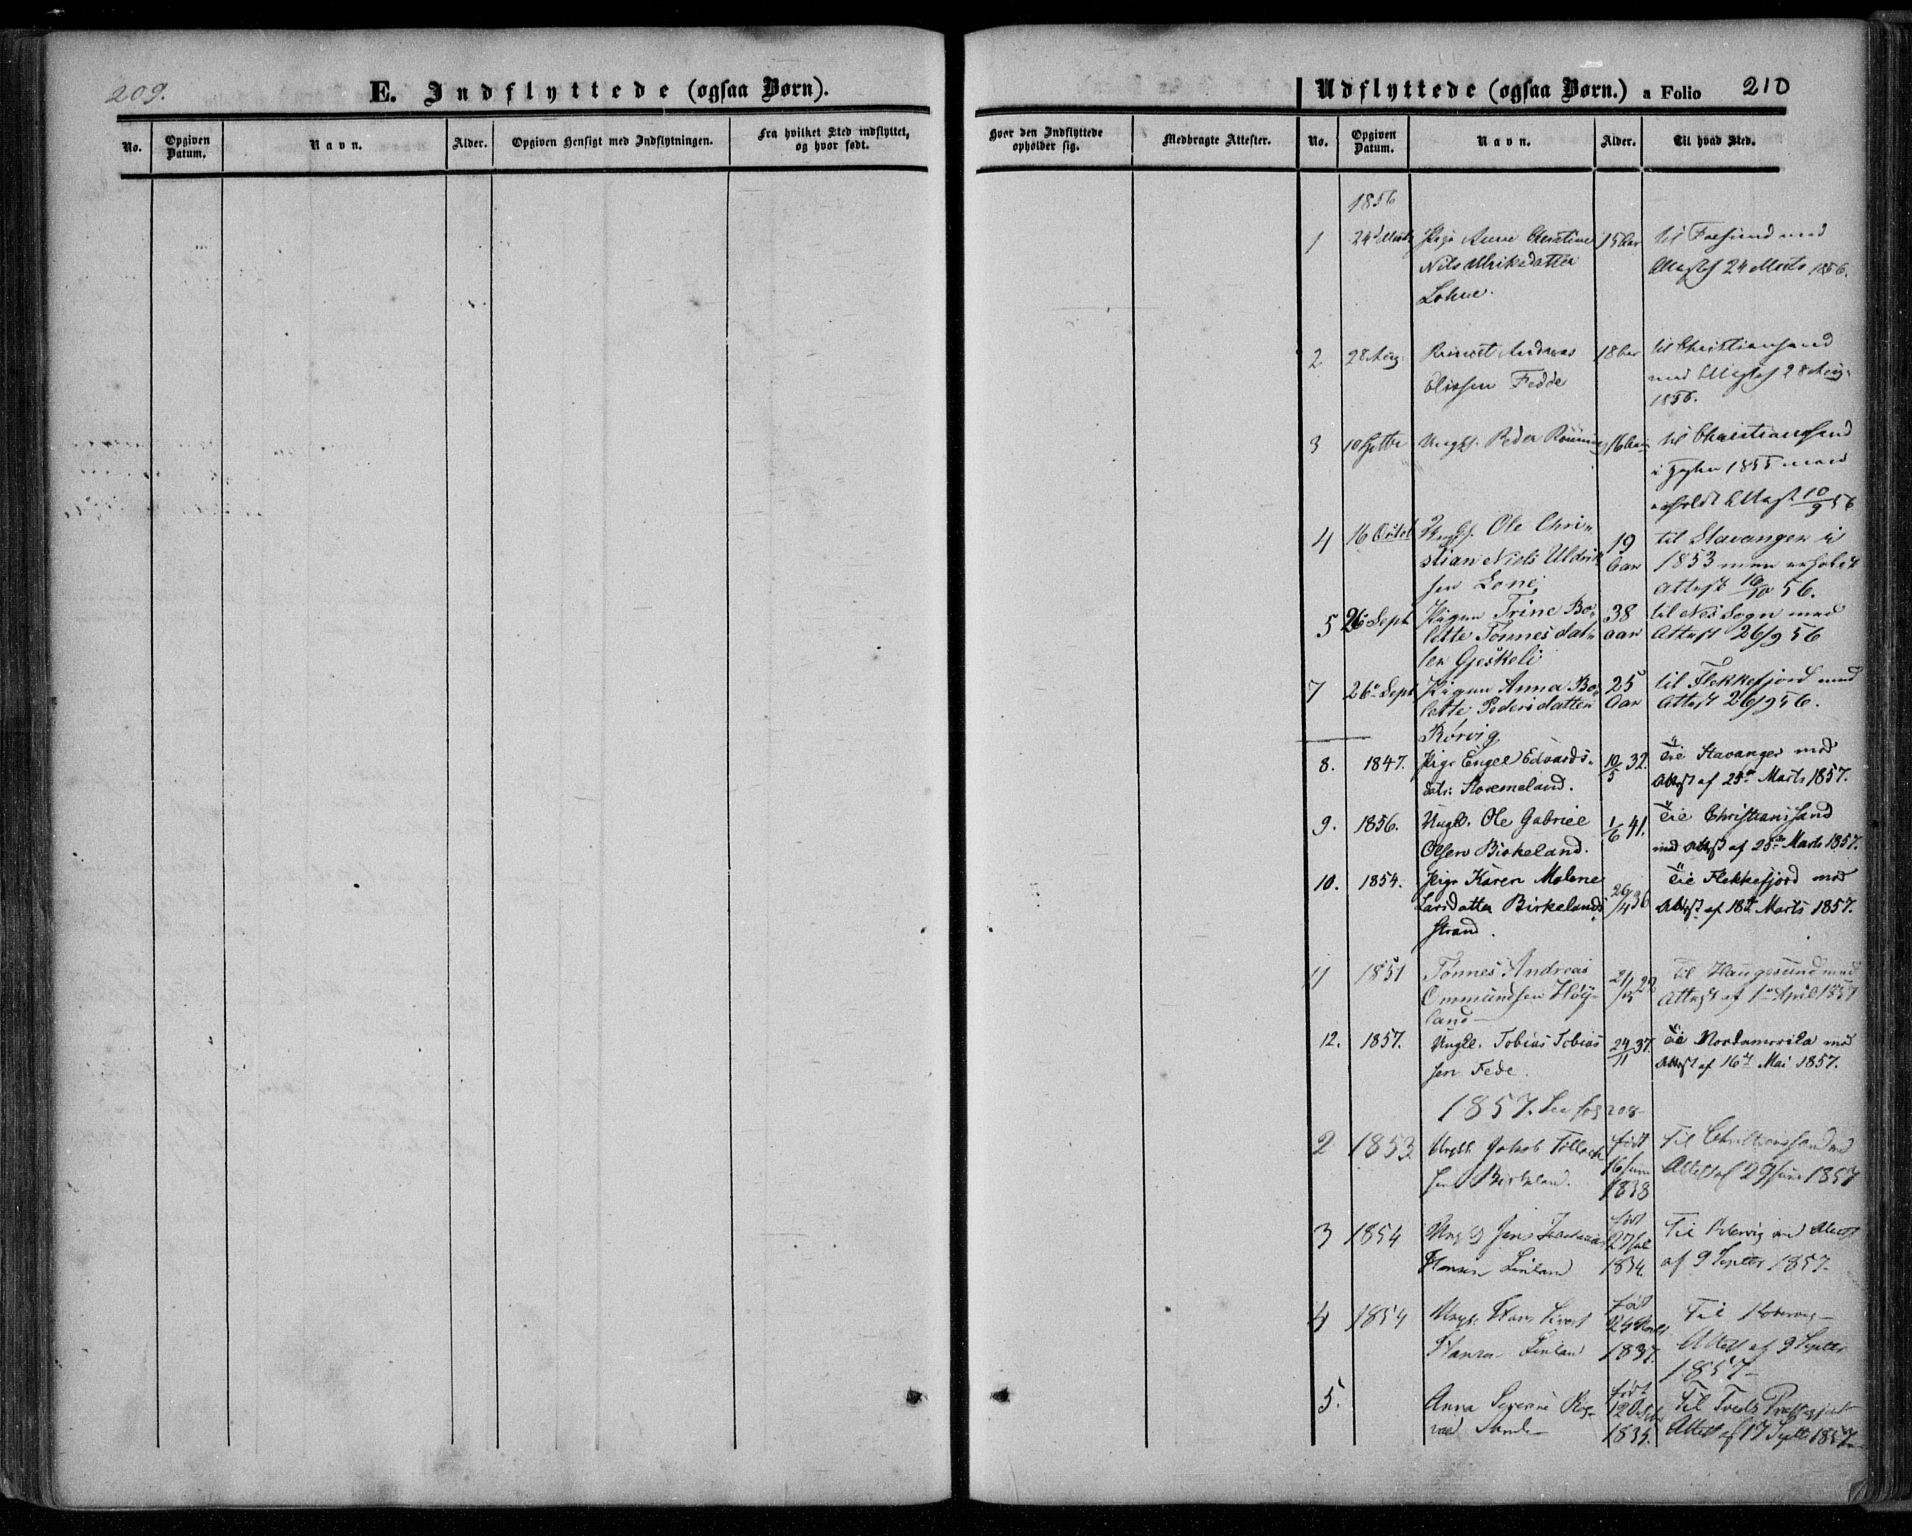 209.
E. Indflyttede (ogsaa Børn).
No.
Opgiven Datum.
Navn.
Alder.
Opgiven Hensigt med Indflytningen.
Fra hvilket Sted indflyttet, og hvor født.
Hvor den Indflyttede opholder sig.
Medbragte Attester.
Udflyttede (ogsaa Børn.) a Folio 210
No.
Opgiven Datum.
Navn.
Alder.
Til hvad Sted.
1856
1 24 Marts Pige Anne Christine 15 Aar til Farsund med
Nils Ulriksdatter Attest 24 Marts 1856.
Lohne.
2 28 Aug. Andreas 18 Aar til Christiansand
Fedde med Attest 28 Aug.
1856.
3 10 Septbr Ungk. Peder 16 Aar til Christiansand
1855 men
erholdt Attest 10/9 56
4 16 Octob Ungk. Ole Chri- 19 til Stavanger i
stian Niels Uldrik Aar 1853 men erholdt
sen Lone Attest 16/10 56.
5 26 Sept Pigen Trine Bo- 38 til Nes Sogn med
lette Tønnesdat- Aar Attest 26/9 56
ter Gjeskeli
7 26 Sept Pigen Anna Bo- 25 til Flekkefjord med
lette Pedersdatter Aar Attest 26/9 56.
Rørvig
8. 1847. Pige Engel Edvards- 10/5 32. Til Stavanger med
datr. Storemeland. Attest af 25de Marts 1857.
9. 1856. Ungk. Ole Gabriel 1/6 41. Til Christianssand
Olsen Birkeland. med Attest af 25de Marts 1857.
10. 1854. Pige Karen Malene 26/4 36 Til Flekkefjord med
Larsdatter Birkelands Attest af 18de Marts 1857.
Strand.
11 1851 Tønnes Andreas Til Haugesund med
Ommundsen Høy- Attest af 1 April 1857
land
12. 1857. Ungk. Tobias Tobias 24/11 37. Til Nordamerika med
sen Fede. Attest af 16de Mai 1857.
1857. See fog 208
2 1853 Ungk. Jakob født Til Christianssand md
sen Birkeland. 16 Juni Attest af 29 Juni 1857
1838
3 1854 Ungk Jens født Til med Attest
Hansen 27 Jul af 9 Septbr 1857.
1834.
4 1854 Ungk. Hans født Til
Hansen 24 Attest af 9 Septbr
1837. 1857
5. Anna Severine født Til Tveds Præstegjæld
1835. Attest af 17 Septbr 1857